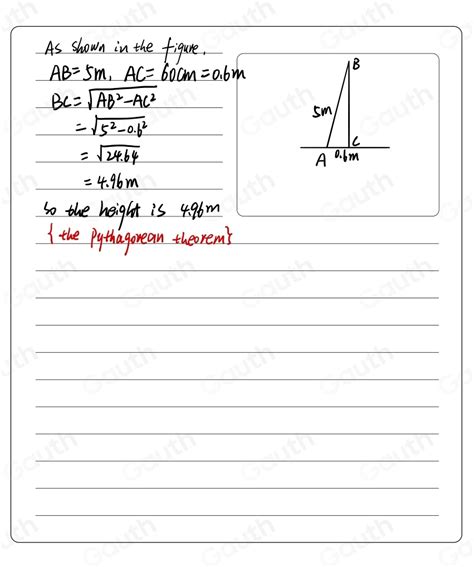 As shown in the figure,
AB=5m, AC=60cm=0.6m
BC=√AB²-AC²
=√5²-0.6²
=√24.64
=4.96m
so the height is 4.96m
{the Pythagorean theorem}
B
5m
C
A 0.6m
Gauth